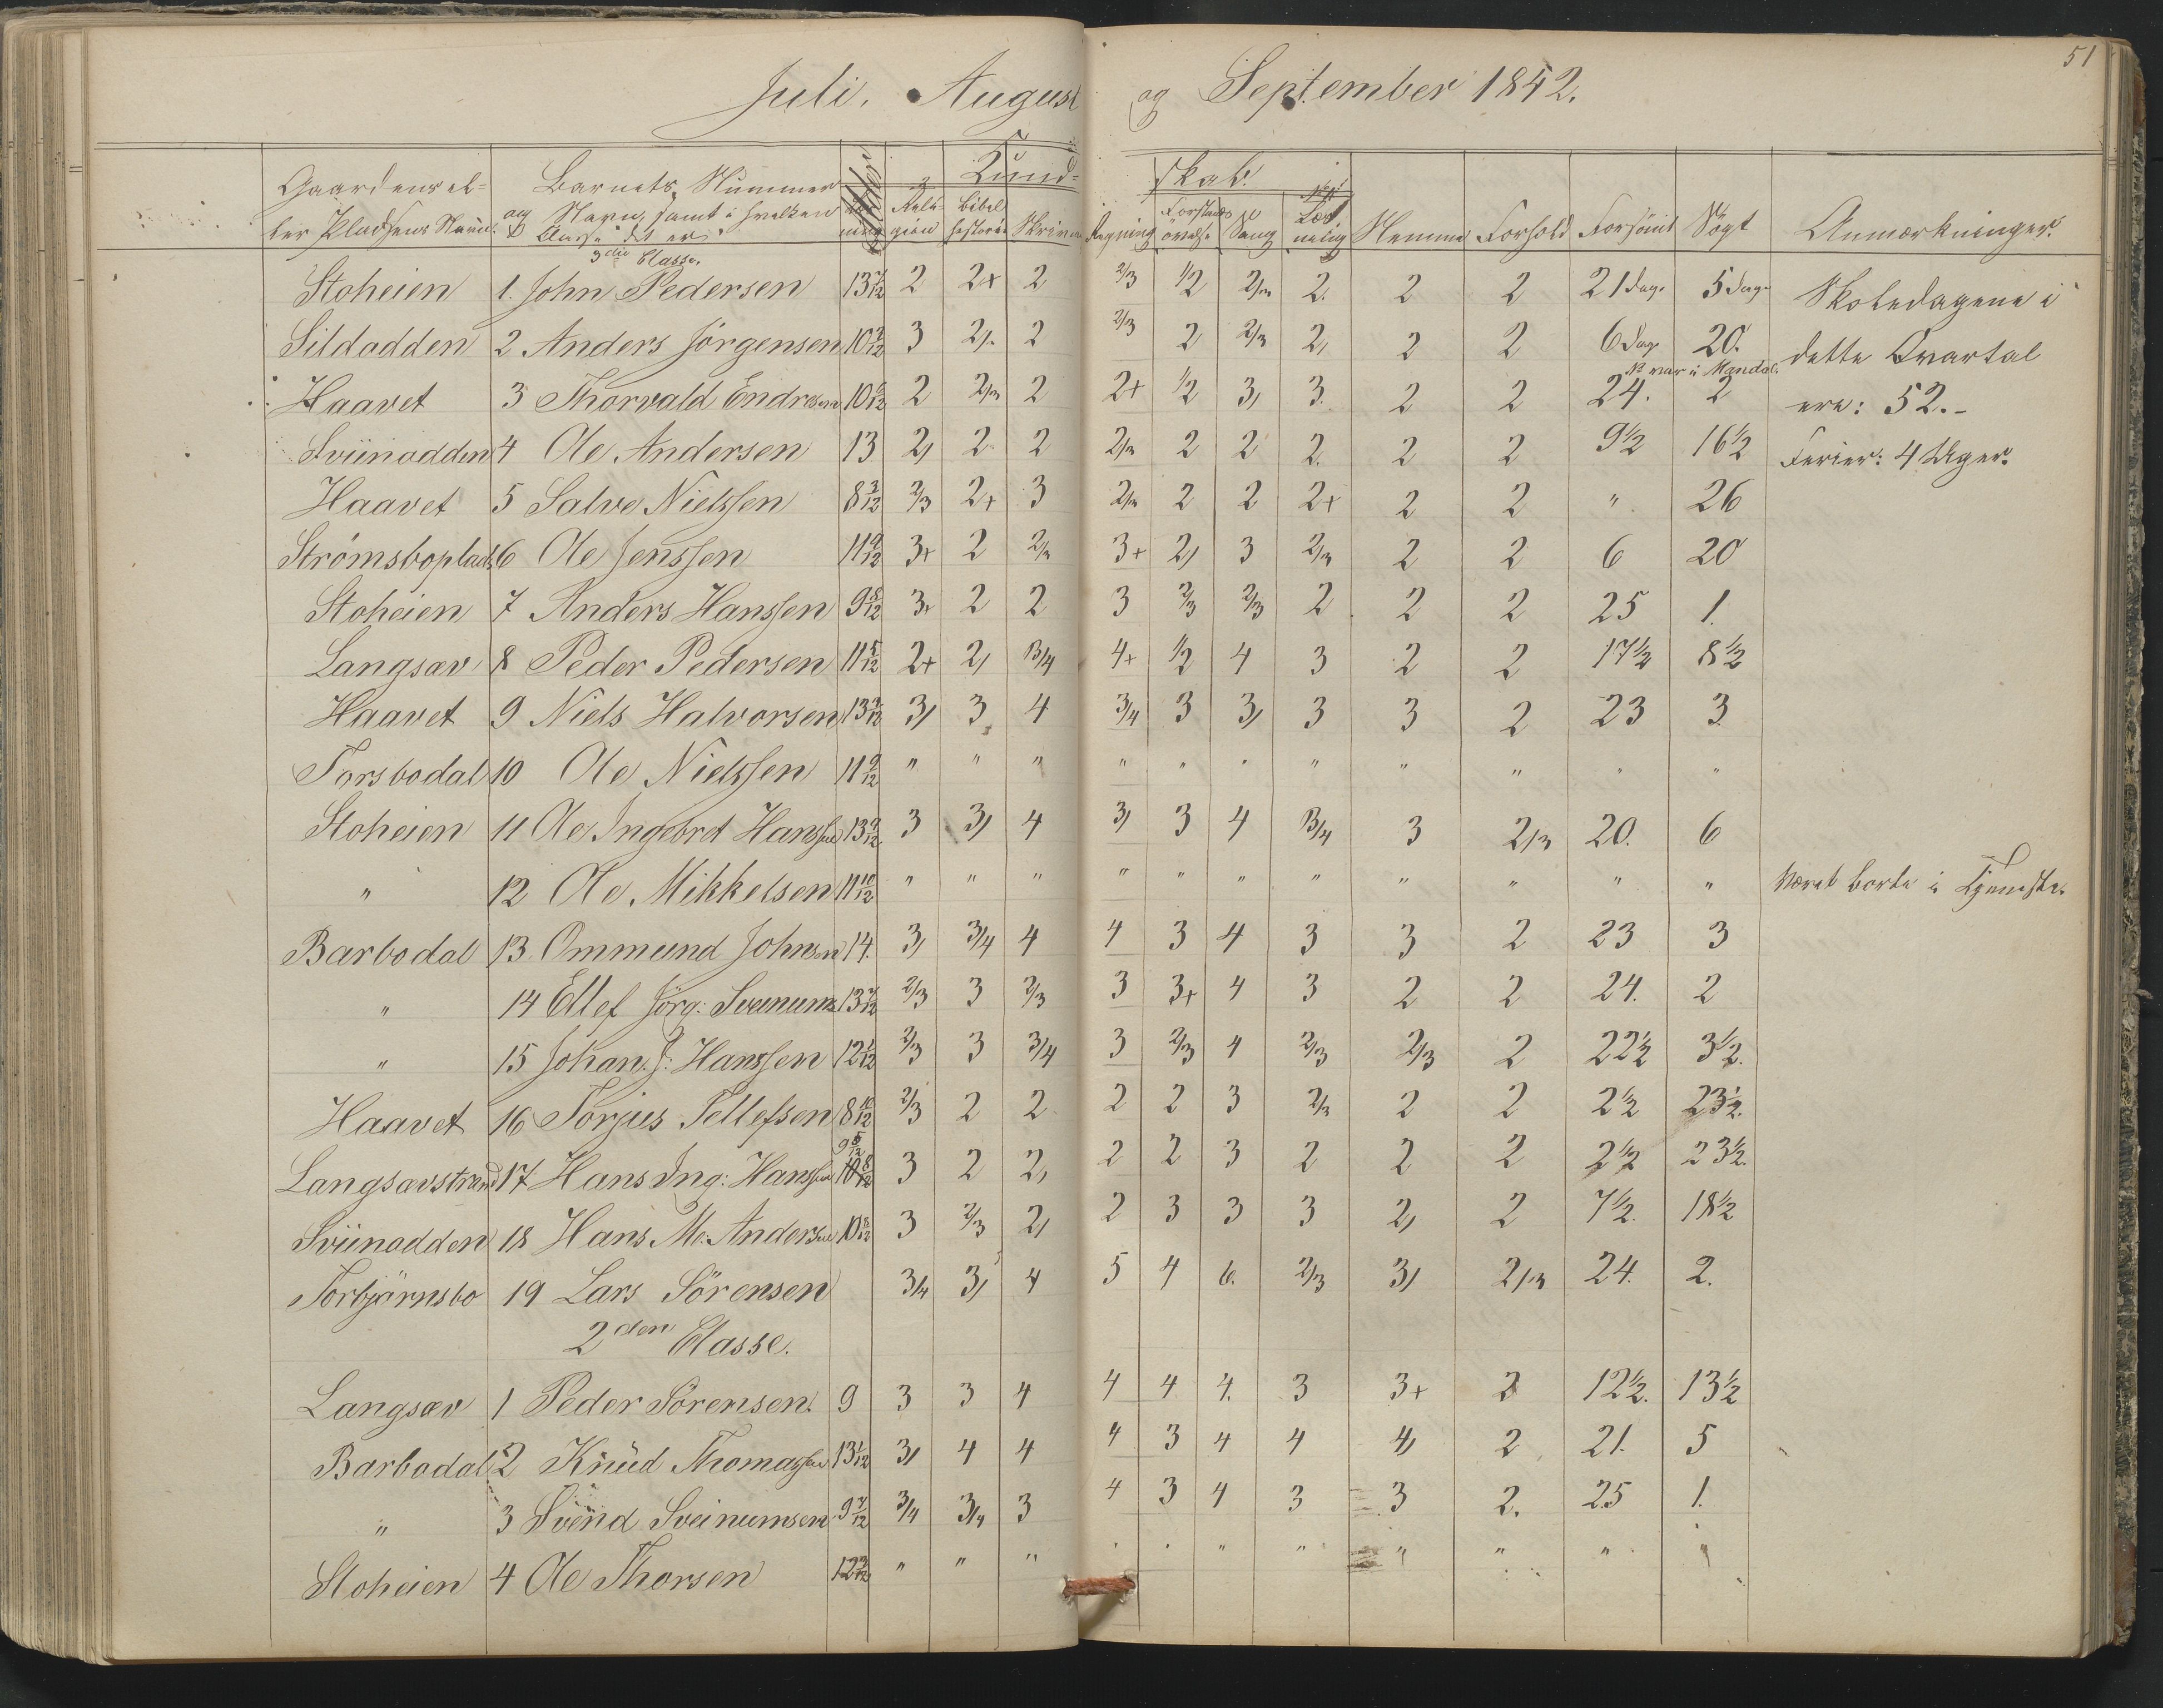 51
Juli, August og September 1842.
Kund- skab.
Gaardens el- Barnets Nummer Reli- Bibel Forstands Læs
og Navn, samt i hvilken
ler Pladsens Navn. Classe det er gion historie Skrivn Regning øvelse Sang nelig Hemme Forhold Forsømt Søgt Anmærkninger.
3die Classe.
Stoheien 1. John Pedersen 13 7/12 2 2+ 2 2/3 1/2 2/3 2. 2 2 21 dage 5 dage Skoledagene i
Sildodden 2 Anders Jörgensen 10 3/12 3 2/. 2 2/3 2 2/3 2, 2 2 6 dage 20. dette Qvartal
No var i Mandal.
Haavet 3 Thorvald Endresen 10 6/12 2 2/3 2 2+ 1/2 3/ 3. 2 2 24. 2 ere: 52.-
Sviinodden 4 Ole Andersen 13 2/ 2 2 2/3 2 2 2. 2 2 9 1/2 16 1/2 Ferier: 4 Uger.
Haavet 5 Salve Nielssen 8 3/12 2/3 2+ 3 2/3 2 2 2+ 2 2 " 26
Strömsboplads 6 Ole Jenssen 11 9/12 3+ 2 2/3 3+ 2/ 3 2/3 2 2 6 20
Stoheien 7 Anders Hanssen 9 8/12 3+ 2 2 3 2/3 2/3 2 2 2 25 1.
Langsæv 8 Peder Pedersen 11 5/12 2+ 2/ 3/4 4+ 1/2 4 3 2 2 17 1/2 8 1/2
Haavet 9 Niels Halvorsen 13 9/12 3/ 3 4 3/4 3 3/ 3 3 2 23 3
Torsbodal 10 Ole Nielssen 11 9/12 " " " " " " " " " " "
Stoheien 11 Ole Ingebrt Hanssen 13 9/12 3 3/ 4 3/ 3 4 3/4 3 2/3 20. 6
" 12 Ole Mikkelsen 11 10/12 " " " " " " " " " " " Været borte i Tjeneste.
Barbodal 13 Ommund Johnsen 14. 3/ 3/4 4 4 3 4 3 3 2 23 3
" 14 Ellef Jörg: Sveinums 13 7/12 2/3 3 2/3 3 3+ 4 3 2 2 24. 2
" 15 Johan J: Hanssen 12 1/12 2/3 3 3/4 3 2/3 4 2/3 2/3 2 22 1/2 3 1/2.
Haavet 16 Torjus Tellefsen 8 10/12 2/3 2 2 2 2 3 2/3 2 2 2 1/2 23 1/2.
9 5/12
Langsævstrand 17 Hans Ing: Hanssen 10 8/12 3 2 2, 2 2 3 2 2 2 2 1/2 23 1/2.
Sviinodden 18 Hans M. Andersen 10 8/12 3 2/3 2/ 2 3 3 3 2/ 2 7 1/2. 18 1/2
Torbjörnsbo 19 Lars Sörensen 3/4 3/ 4 5 4 6. 2/3 3/ 2/3 24. 2.
2den Classe.
Langsæv 1 Peder Sörensen. 9 3 3 4 4 4 4. 3 3+ 2 12 1/2. 13 1/2
Barbodal 2 Knüd Thomassen 13 1/12 3/ 4 4 4 3 4 4 4/ 2 21. 5
" 3 Svend Sveinumsen 9 7/12 3/4 3/4 3 4 3 4 3 3 2. 25 1.
Stoheien 4 Ole Thorsen 12 3/12 " " " " " " " " " " "